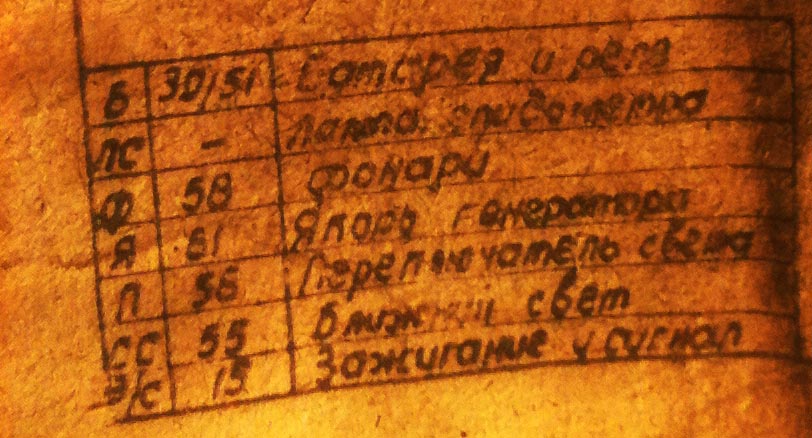 Б 30/51 Батарея и реле
ЛС - Лампа спидометра
Ф 58 Фонари
Я 61 Якорь генератора
П 56 Переключатель света
СС 55 Ближний свет
З/С 15 Зажигание и сигнал